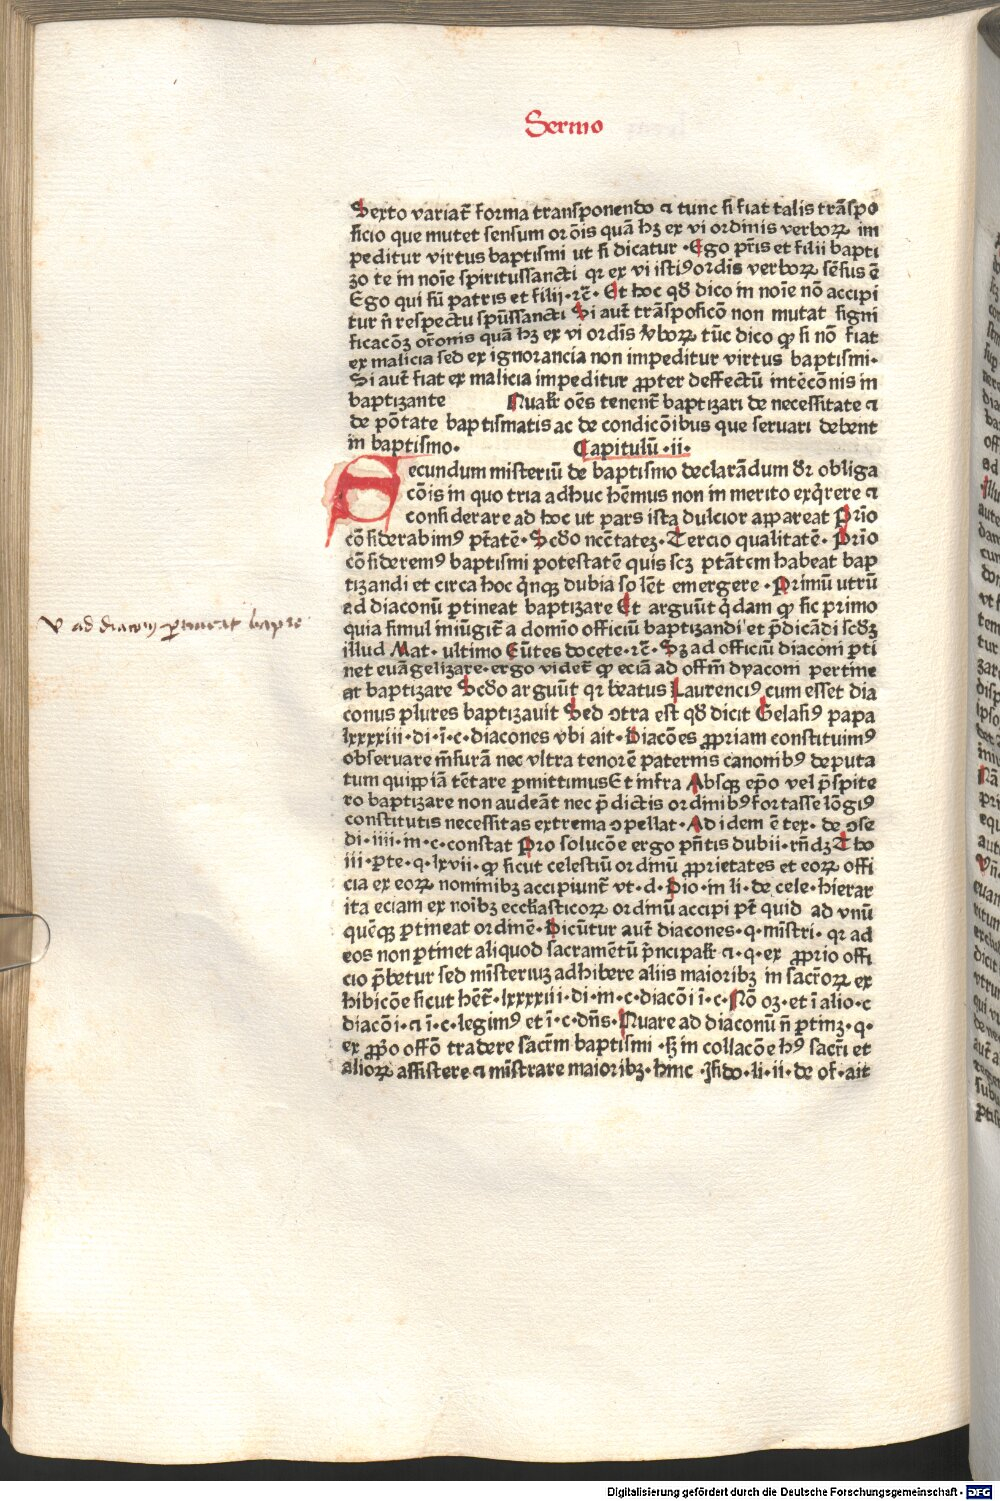 Sermo
Sexto variat̄ forma transponendo ⁊ tunc si fiat talis trāspo
sicio que mutet sensum orōis quā hʒ ex vi ordinis verboꝝ im
peditur virtus baptismi ut si dicatur · Ego pr̄is et filii bapti
zo te in noīe spiritussancti qꝛ ex vi istiꝰordīs verboꝝ sēsus ē
Ego qui sū patris et filij · ⁊c̄ · Et hoc qđ dico in noīe nō accipi
tur n̄ respectu spūssancti Si aut̄ trāsposicō non mutat signi
ficacōʒ or̄onis quā hʒ ex vi ordīs v̄boꝝ tūc dico ꝙ si nō fiat
ex malicia sed ex ignorancia non impeditur virtus baptismi·
Si aut̄ fiat ex malicia impeditur ꝓpter deffectū intēcōnis in
baptizante Nuałr oēs tenent̄ baptizari de necessitate ⁊
de pōtate baptismatis ac de condicōibus que seruari debent
in baptismo· Capitulū · ii·
Secundum misteriū de baptismo declarādum ēr obliga
cōis in quo tria adhuc hēmus non in merito exq̄rere ⁊
considerare ad hoc ut pars ista dulcior appareat Prīo
cōsiderabimꝰ ptāte · Scđo ncētateʒ · Tercio qualitatē · Prīo
cōsideremꝰ baptismi potestatē quis scʒ ptātem habeat bap
tizandi et circa hoc q̄nqꝫ dubia solēt emergere · Primū utrū
ad diaconū ꝑtineat baptizare Et arguūt q̄dam ꝙ sic primo
quia simul iniūgit̄ a domīo officiū baptizandi et p̄dicādi scđʒ
illud Mat · ultimo Eūtes docete · ⁊c̄ · Sʒ ad officiū diaconi ꝑti
net euāgelizare · ergo videt̄ ꝙ eciā ad offm̄ dyaconi pertine
at baptizare Scđo arguūt qꝛ beatus Laurenciꝰ cum esset dia
conus plures baptizauit Sed ↄtra est qđ dicit Gelasiꝰ papa
lxxxxiii · di · ī · c · diacones vbi ait · Diacōes ꝓpriam constituimꝰ
obseruare m̄surā nec vltra tenorē paternis canonibꝰ deputa
tum quippiā tētare ꝑmittimusEt infra Absqꝫ ep̄o vel p̄spite
ro baptizare non audeāt nec p̄dictis ordinibꝰ fortasse lōgiꝰ
constitutis necessitas extrema ↄpellat · Ad idem ē tex · de ↄse
di · iiii · in · c · constat Pro solucōe ergo pn̄tis dubii · rn̄dʒ Tho
iii · ꝑte · q · lxvii · ꝙ sicut celestiū ordinū ꝓprietates et eoꝝ offi
cia ex eoꝝ nominibʒ accipiunt̄ vt · d · Dio · in li · de cele · hierar
ita eciam ex noībʒ ecclīasticoꝝ ordinū accipi pt̄ quid ad vnū
quēqꝫ ꝑtineat ordinē · Dicūtur aut̄ diacones · q · mīstri · qꝛ ad
eos non ꝑtinet aliquod sacramētū p̄ncipałr ⁊ · q · ex ꝓprio offi
cio p̄betur sed mīsteriuʒ adhibere aliis maioribʒ in sacr̄oꝝ ex
hibicōe sicut hēt̄ · lxxxxiii · di · in · c · diacōi ī · c · Nō oʒ · et ī alio · c
diacōi · ⁊ ī · c · legimꝰ et ī · c · dn̄s · Nuare ad diaconū n̄ ꝑtinʒ · q ·
ex ꝓp̄o offō tradere sacr̄m baptismi · sʒ in collacōe hꝰ sacr̄i et
alioꝝ assistere ⁊ mīstrare maioribʒ · hinc · Isido · li · ii · de of · ait
v ad diaconū ꝑtineat baptre
Digitalisierung gefördert durch die Deutsche Forschungsgemeinschaft - DFG